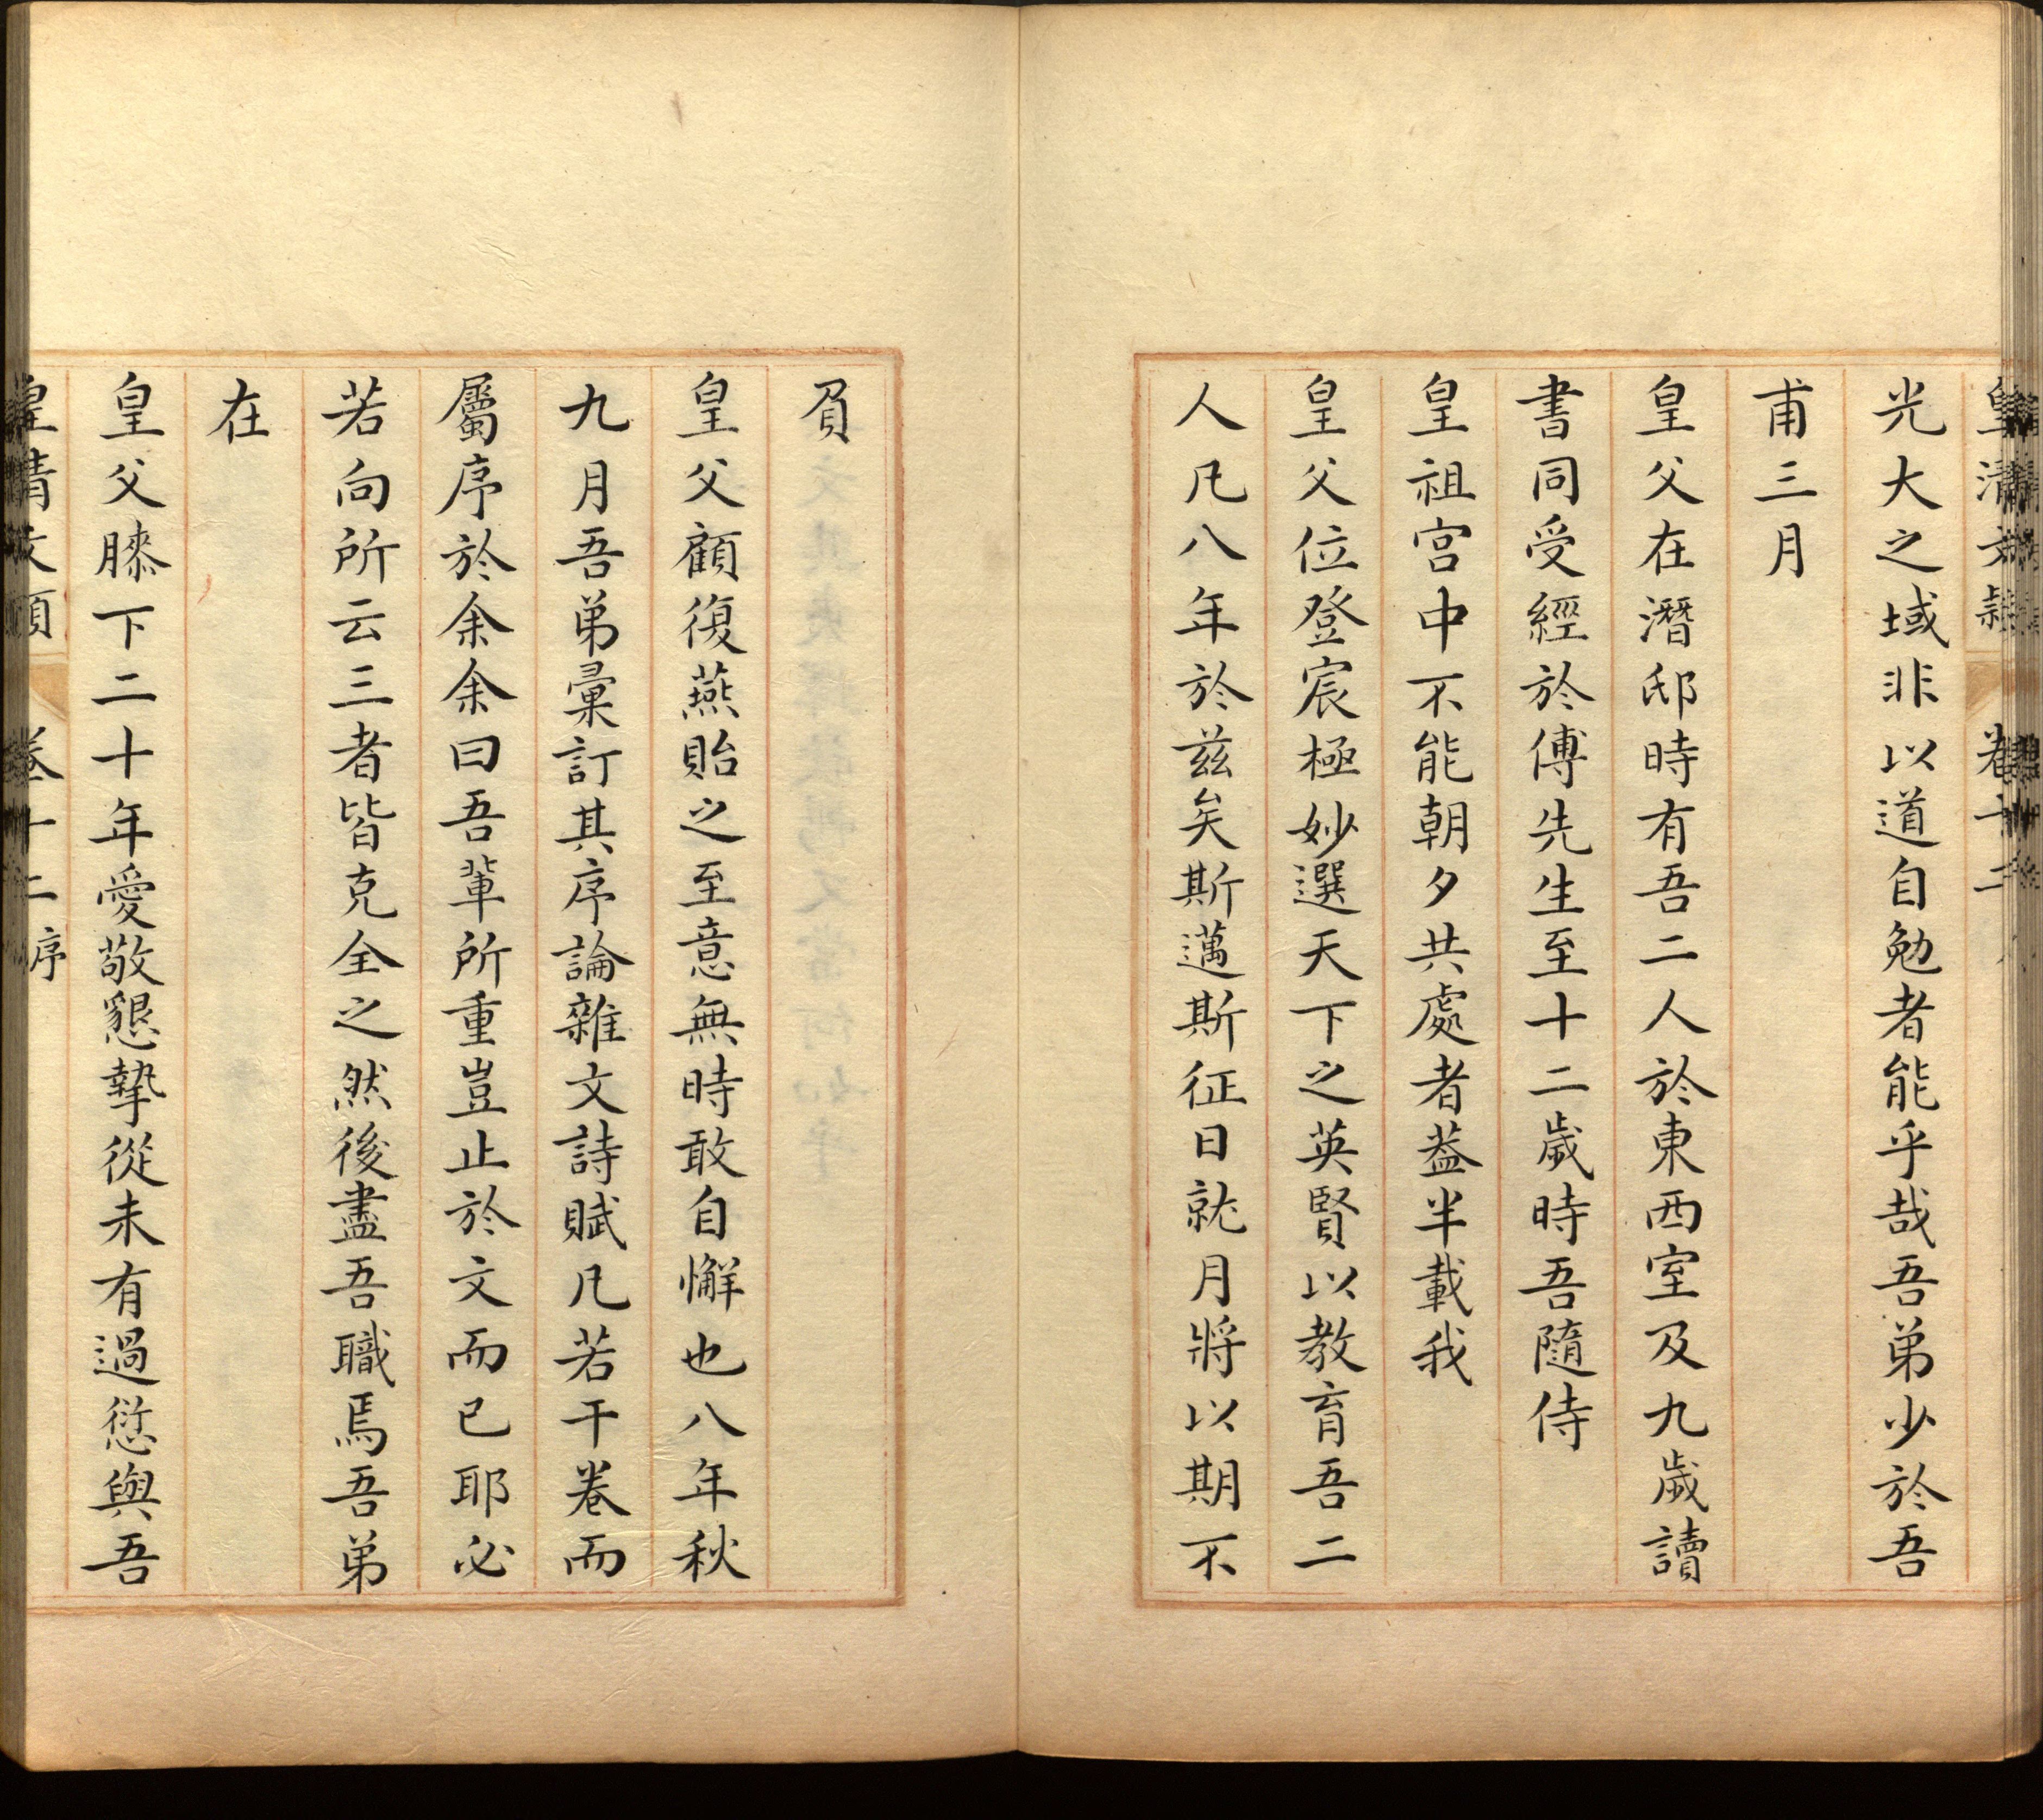 皇清文穎 卷十二
光大之域非以道自勉者能乎哉吾弟少於吾
甫三月
皇父在潛邸時有吾二人於東西室及九歲讀
書同受經於傅先生至十二歲時吾隨侍
皇祖宮中不能朝夕共處者葢半載我
皇父位登宸極妙選天下之英賢以教育吾二
人凡八年於茲矣斯邁斯征日就月將以期不
負
皇父顧復燕貽之至意無時敢自懈也八年秋
九月吾弟彙訂其序論雜文詩賦凡若干卷而
屬序於余余曰吾輩所重豈止於文而已耶必
若向所云三者皆克全之然後盡吾職焉吾弟
在
皇父膝下二十年愛敬懇摯從未有過愆與吾
皇清文穎 卷十二 序